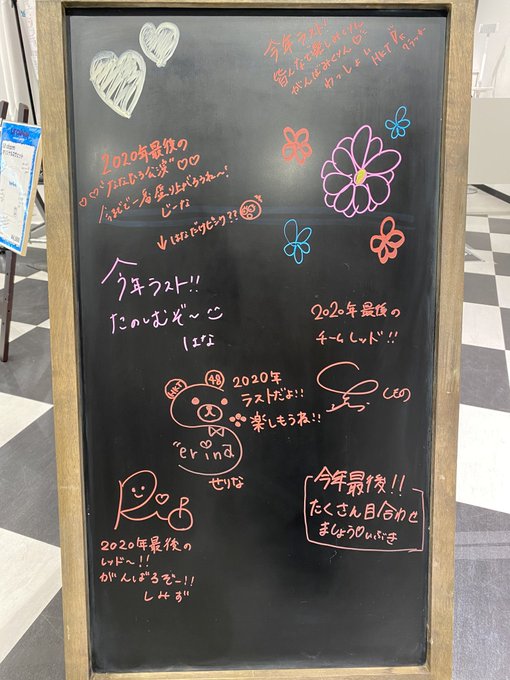 今年ラスト!
皆んなで楽しみくりん
がんばみくりん♡
わっしょい
HKT
2020年最後の
♡♡"なたひろ公演"♡♡
今までで一番盛り上がろうね〜!
じーな
↓はなだけピンク??
今年ラスト!!
たのしむぞ〜
はな
2020年最後の
チームレッド!!
しの
HKT 48
2020年
ラストだよ!!
楽しもうね!!
"erina
せりな
Rio
2020年最後の
レッド〜!!
がんばるぞー!!
しみず
今年最後!!
たくさん目合わせ
ましょう♡いぶき